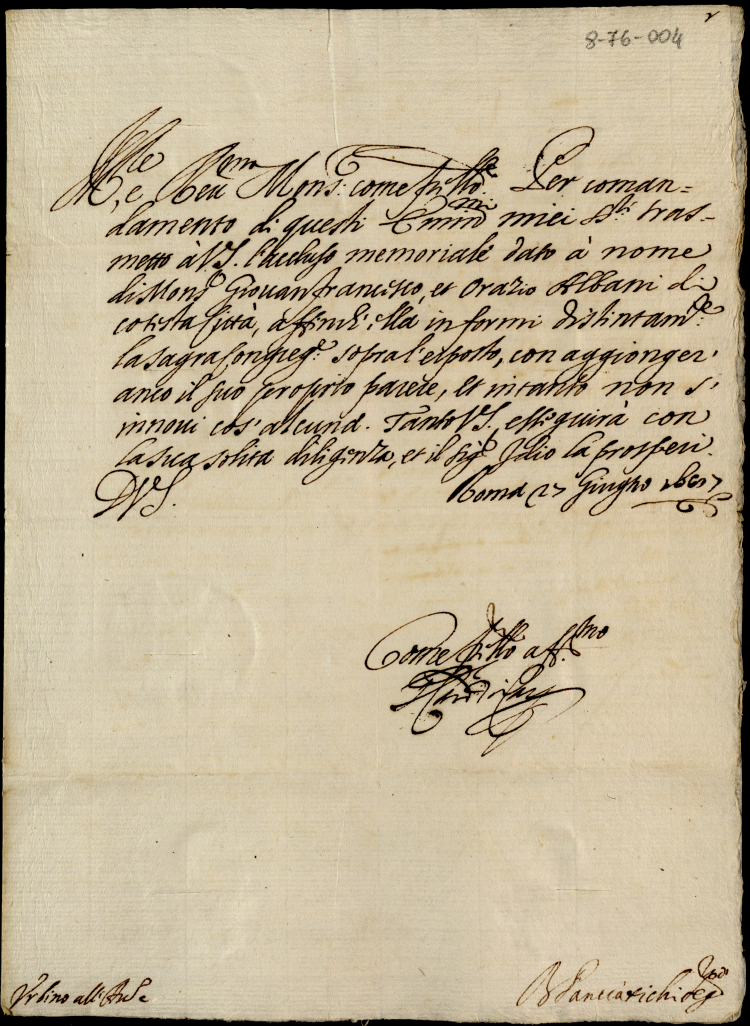 8-76-004
Ill.re
M. e Reu Rmo Mons: come frllo. Per coman=
damento di questi Emmi miei Sri tras=
metto à V.S. l'accluso memoriale dato à nome
di Mons Giouanfrancesco, et Orazio Albani di
cotista Città, affinch'ella informi distintam.te
la sagra Congreg.e sopra l'esposto, con aggionger'
anco il suo proprio parere, et intanto non s'
innoui cos' alcuna. Tanto V.S. esseguirà con
la sua solita diligenza, et il Sig.e Idio la prosperi.
D V.S. Roma 27 Giugno 1667
Come frllo aff.mo
Vrbino all' Arciu.e
B Panciatichi Seg.rio